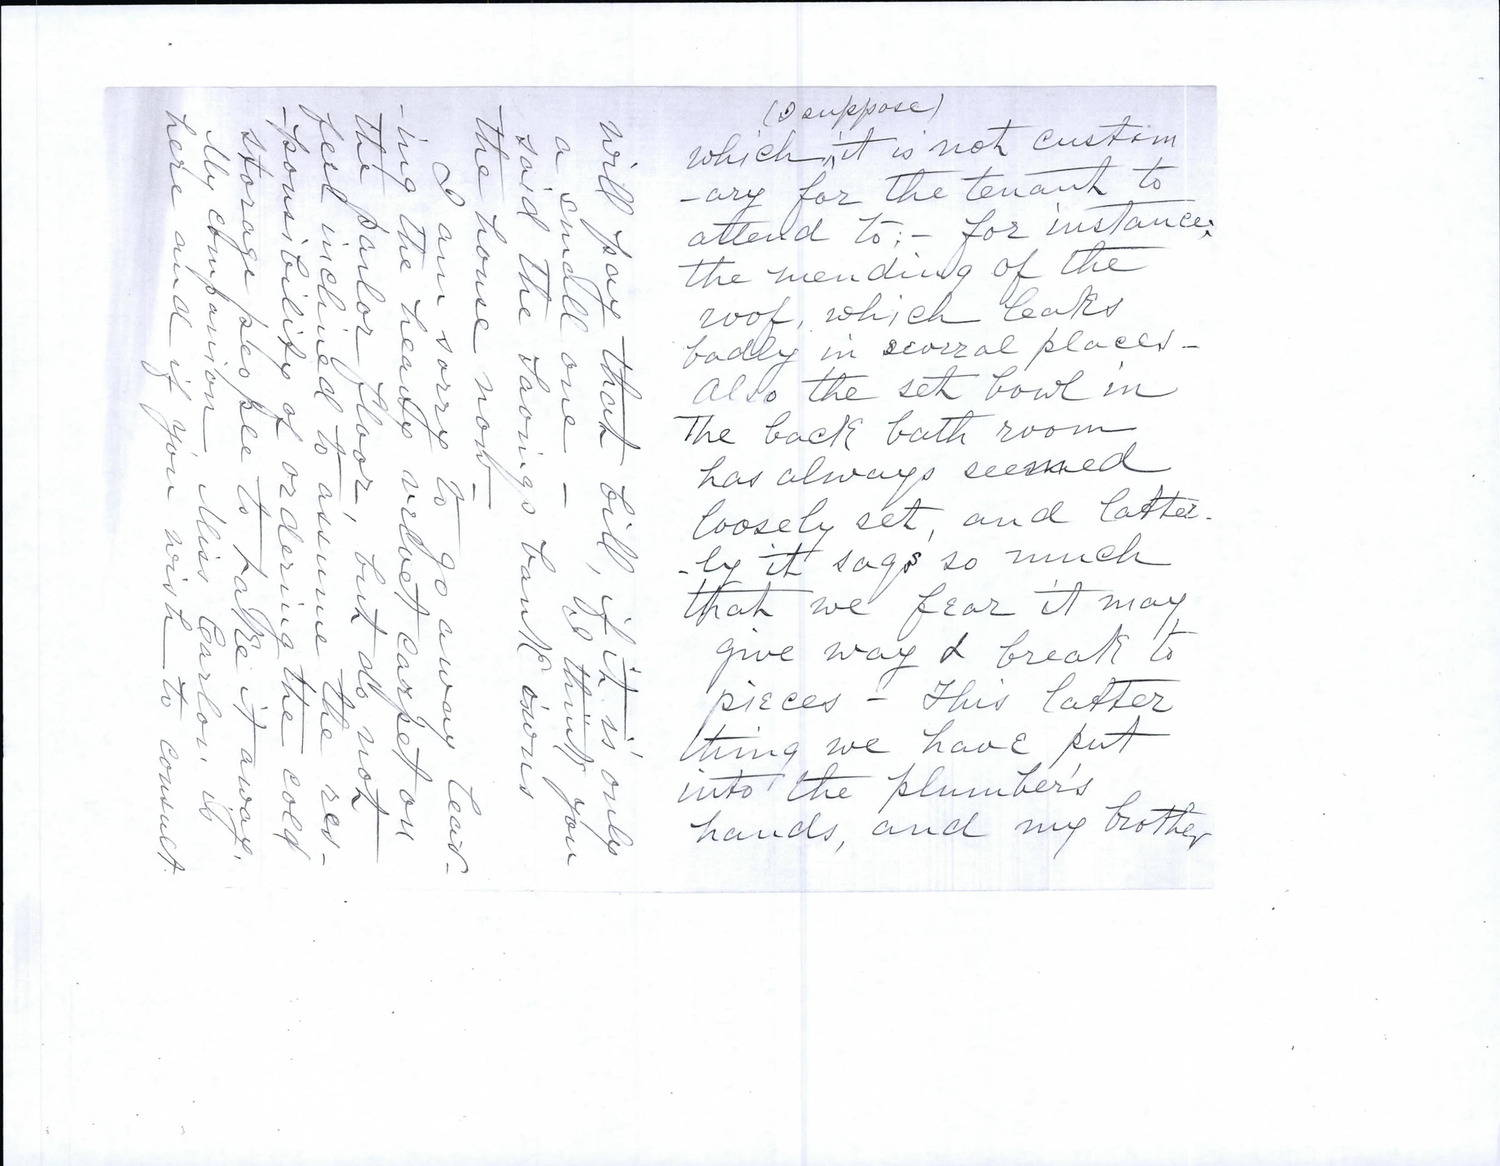 (I suppose)
which it is not custom
-ary for the tenant to
attend to; - for instance:
the mending of the
roof, which leaks
badly in several places -
Also the set bowl in
The back bath room
has always seemed
loosely set, and latter-
-ly it sags so much
that we fear it may
give way & break to
pieces - This latter
thing we have put
into the plumber's
hands, and my brother
will pay that bill, if it is only
a small one - I think you
said the savings bank owns
the house now -
I am sorry to go away leav-
-ing the heavy velvet carpet on
the parlor floor, but do not
feel inclined to assume the res-
-ponsibility of ordering the cold
storage people to take it away.
My companion, Miss Carlon is
here and if you wish to consult